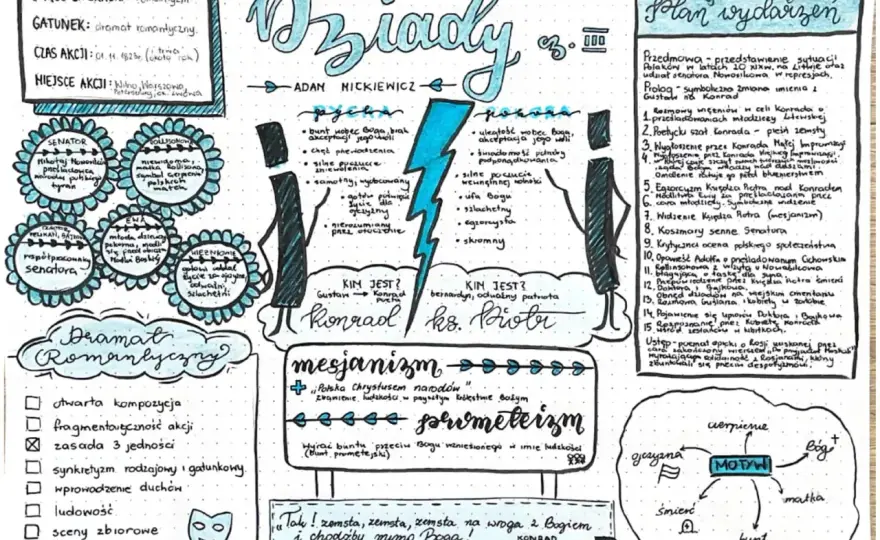 GATUNEK: dramat romantyczny
CZAS AKCJI: 01.11.1823r.
MIEJSCE AKCJI: Wilno, Warszawa,
Dziady cz. III
ADAM MICKIEWICZ
PYCHA
• bunt wobec Boga, brak
akceptacji jego woli
• chęć przewodzenia
• silne poczucie
zniewolenia
• samotny, wyobcowany
• gotów poświęcić
życie dla
ojczyzny
• niezrozumiany
przez otoczenie
POKORA
• uległość wobec Boga,
akceptacja jego woli
• świadomość
podporządkowania
silne poczucie
wewnętrznej wolności
• ufa Bogu
• szlachetny
• egzorcysta
• skromny
KIM JEST?
Gustaw → Konrad
Poeta
Konrad
KIM JEST?
bernardyn, odważny patriota
ks. Piotr
SENATOR
Mikołaj Nowosilcow
prześladowca
narodu polskiego
tyran
ROLLISONOWA
niewidoma,
matka Rollisona,
symbol cierpienia
polskich
matek
współpracownicy
senatora
EWA
młoda, dziewczyna
pokorna, modli
się przed obrazem
Matki Boskiej
WIĘŹNIOWIE
gotowi oddać
życie za ojczyznę,
odważni
szlachetni
Dramat
Romantyczny
otwarta kompozycja
fragmentaryczność akcji
zasada 3 jedności
synkretyzm rodzajowy i gatunkowy
wprowadzenie duchów
ludowość
sceny zbiorowe
mesjanizm
"Polska Chrystusem narodów"
zbawienie ludzkości w przyszłym królestwie Bożym
prometeizm
wyraz buntu przeciw Bogu wzniesionego w imię ludzkości
(bunt prometejski)
"Tak! zemsta, zemsta, zemsta na wroga z Bogiem
i chociażby mimo Boga!"
KONRAD
Plan wydarzeń
Przedmowa - przedstawienie sytuacji
Polaków w latach 20 XIXw. na Litwie oraz
udział senatora Nowosilcowa w represjach.
Prolog - symboliczna zmiana imienia z
Gustaw na Konrad
1. Rozmowy więźniów w celi Konrada o
prześladowaniach młodzieży litewskiej
2. Poetycki szał Konrada - pieśń zemsty
3. Wygłoszenie przez Konrada Małej Improwizacji
4. Wygłoszenie przez Konrada Wielkiej Improwizacji,
5. Egzorcyzm Księdza Piotra nad Konradem
6. Modlitwa Ewy za prześladowanych przez
cara młodzieży. Symboliczne widzenie
7. Widzenie Księdza Piotra (mesjanizm)
8. Koszmary senne Senatora
9. Krytyczna ocena polskiego społeczeństwa
10. Opowieść Adolfa o prześladowanym Cichowskim
11. Rollinsonowa z wizytą u Nowosilcowa
błagająca o łaskę dla syna
12. Przepowiedzenie przez Księdza Piotra śmierci
Doktora i Bajkowa
13. Obrzęd dziadów na wiejskim cmentarzu
Rozmowa Guślarza i kobiety w żałobie
14. Pojawienie się upiorów Doktora i Bajkowa
15. Rozpoznanie przez kobietę Konrada
wśród zesłańców w kibitkach
MOTYW
cierpienie
Bóg
matka
bunt
śmierć
ojczyzna